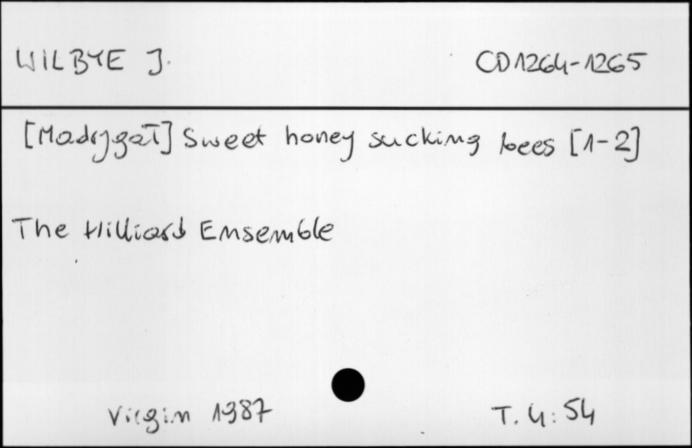 WILBYE J. CD1264-1265
[Madrygał] Sweet honey sucking bees [1-2]
The Hilliard Ensemble
Virgin 1987 T. 4:54